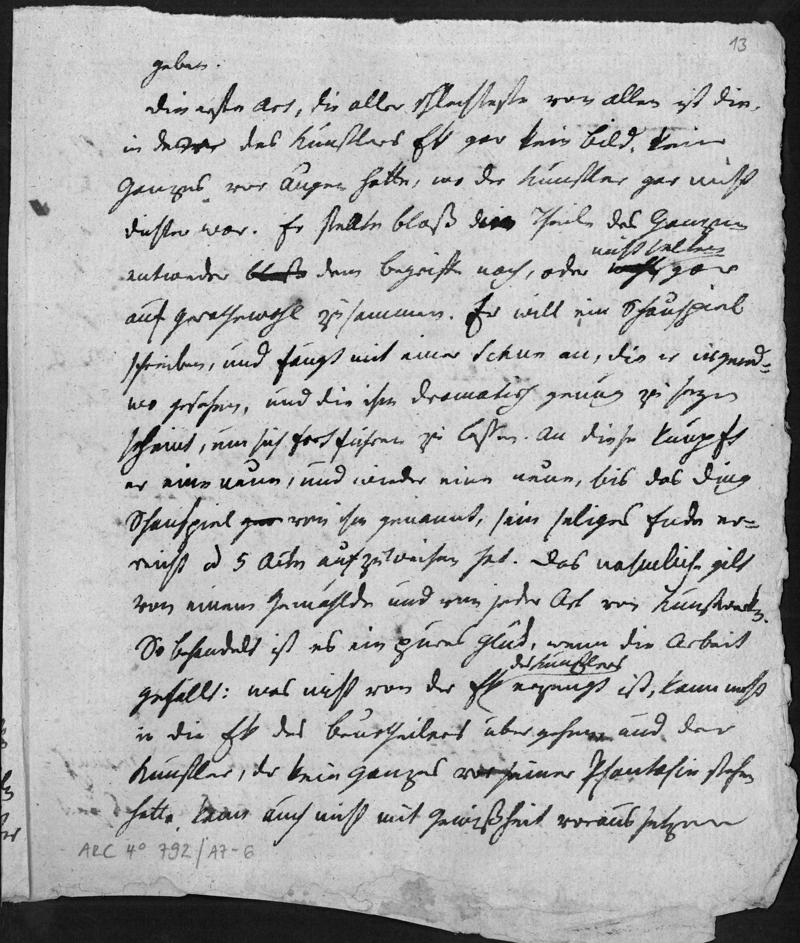 13
geben.
Die erste Art, die aller schlechteste von allen ist die,
in der des Künstlers Ek gar kein Bild, kein
Ganzes vor Augen hatte, wo der Künstler gar nicht
dichter war. Er stellte bloß die Theile des Ganzen
nicht selten
entweder bloß dem begriffe nach, oder gar
auf gerathewohl zusammen. Er will ein Schauspiel
schreiben, und fängt mit einer Scene an, die er irgend=
wo gesehen, und die ihm dramatisch genug zu seyn
scheint, um sich fortführen zu lassen. An diese knüpft
er eine neue, und wieder eine neue, bis das Ding
Schauspiel von ihm genannt, sein seliges Ende er=
reicht od 5 Acte aufzuweisen hat. Das nehmliche gilt
von einem Gemählde und von jeder Art von Kunstwerk.
So behandelt ist es ein pures Glük, wenn die Arbeit
des Künstlers
gefällt: was nicht von der Ek erzeugt ist, kann nicht
in die Ek des Beurtheilers übergehen und der
Künstler, der kein Ganzes vor seiner Phantasie stehen
hatte, kann auch nicht mit Gewißheit voraussetzen
ARC 4° 792/A7-6